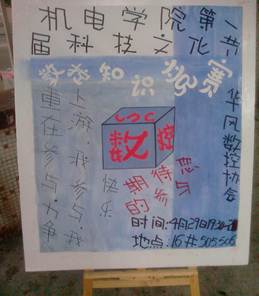 机电学院第一
届科技文化节
数控知识竞赛
重在参与,力争
上游.我参与.我
快乐
数控
期待您
的参与
华风数控协会
时间:4月29日19:20-
地点:16#505 506